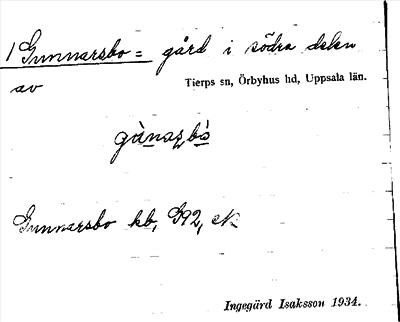 1 Gunnarsbo = gård i södra delen
Tierps sn, Örbyhus hd, Uppsala län.
av
Gunnarsbo kb, G92, eK
Ingegärd Isaksson 1934.